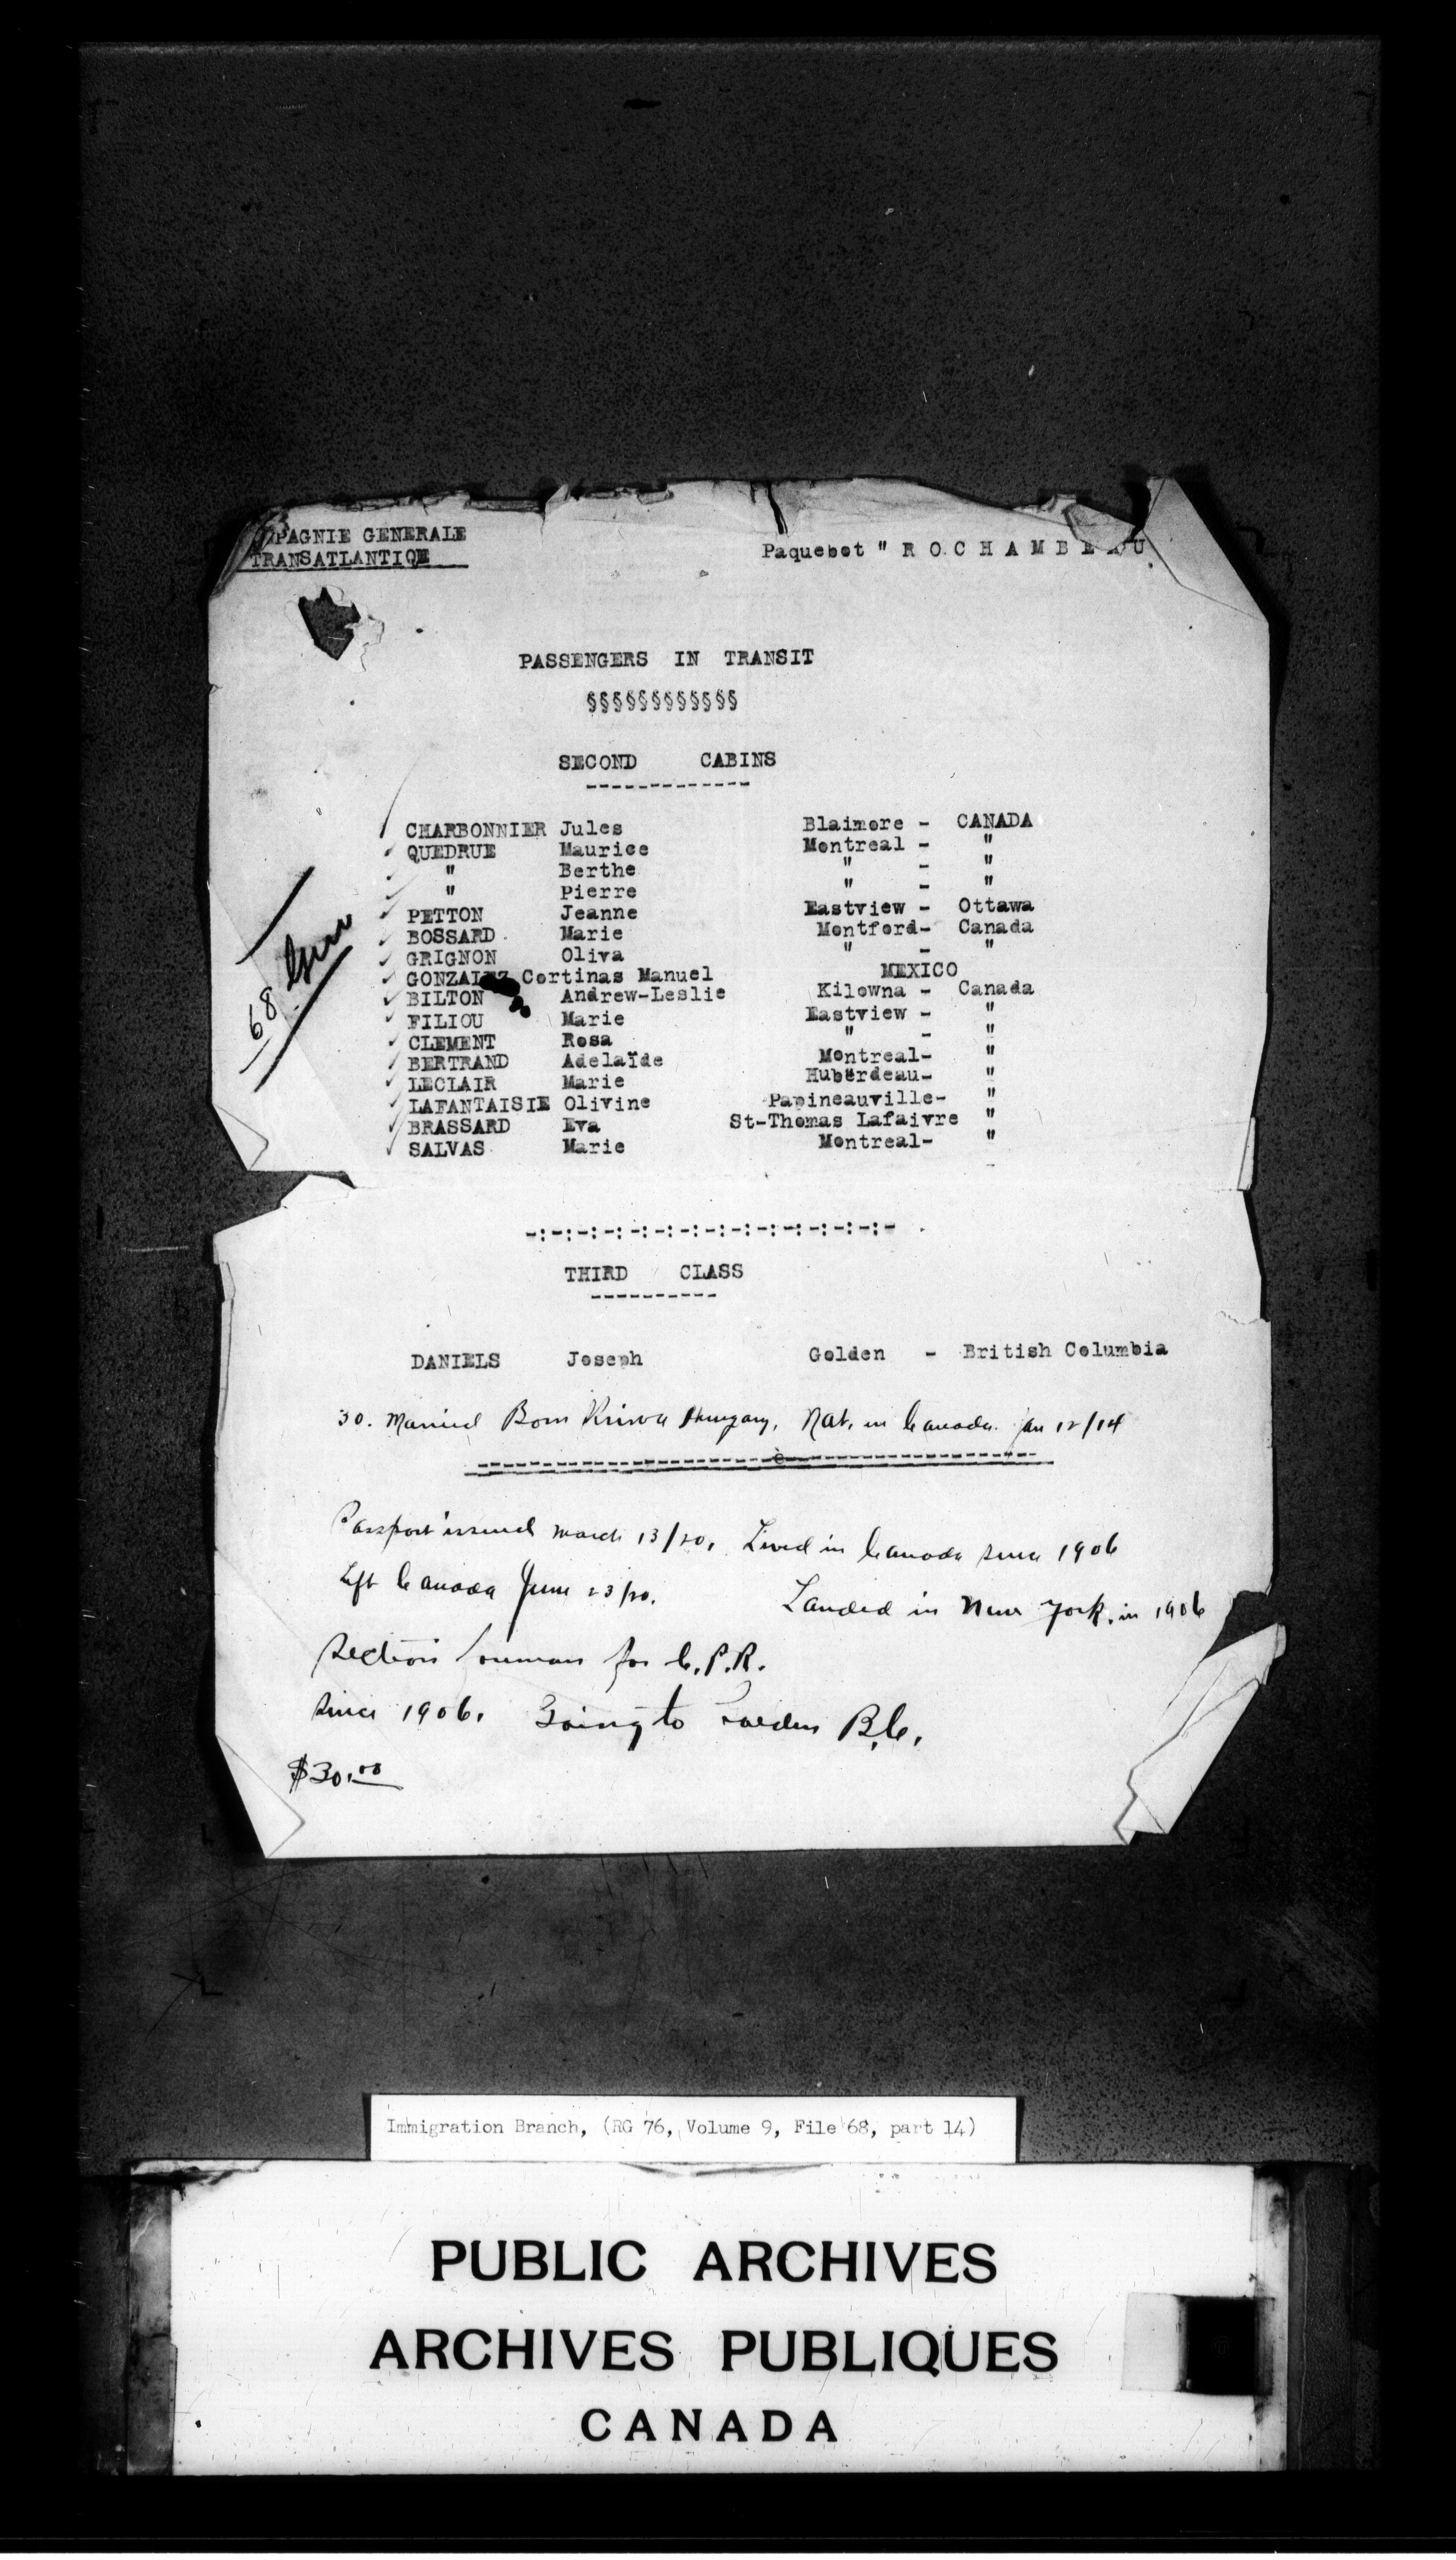 PAGNIE GENERALE
TRANSATLANTIQE
Paquebot " R O C H A M B E A U
PASSENGERS IN TRANSIT
§§§§§§§§§§§§
SECOND CABINS
-------------
CHARBONNIER Jules Blaimore - CANADA
QUEDRUE Maurice Montreal - "
" Berthe " - "
" Pierre " - "
PETTON Jeanne Eastview - Ottawa
BOSSARD Marie Montford- Canada
GRIGNON Oliva " - "
GONZALEZ Cortinas Manuel MEXICO
BILTON Andrew-Leslie Kilowna - Canada
FILIOU Marie Eastview - "
CLEMENT Rosa " - "
BERTRAND Adelaïde Montreal- "
LECLAIR Marie Huberdeau- "
LAFANTAISIE Olivine Papineauville- "
BRASSARD Eva St-Thomas Lafaivre "
SALVAS Marie Montreal- "
68
-:-:-:-:-:-:-:-:-:-:-:-:-:-:-
THIRD CLASS
----------
DANIELS Joseph Golden - British Columbia
30. Married Born Hungary, Nat. in Canada. Jan 12/14
Passport issued march 13/20, Lived in Canada since 1906
Left Canada June 23/20. Landed in New York. in 1906
Section for C.P.R.
since 1906. Going to B.C.
$30.00
Immigration Branch, (RG 76, Volume 9, File 68, part 14)
PUBLIC ARCHIVES
ARCHIVES PUBLIQUES
CANADA